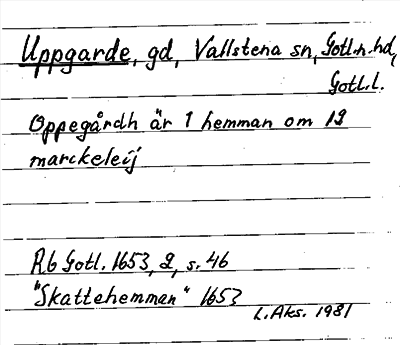 Uppgarde, gd, Vallstena sn, Gotl.n.hd,
Gotl.l.
Oppegårdh är 1 hemman om 19
marckeleij
Rb Gotl. 1653, 2, s. 46
"Skattehemman" 1653
L. Aks. 1981